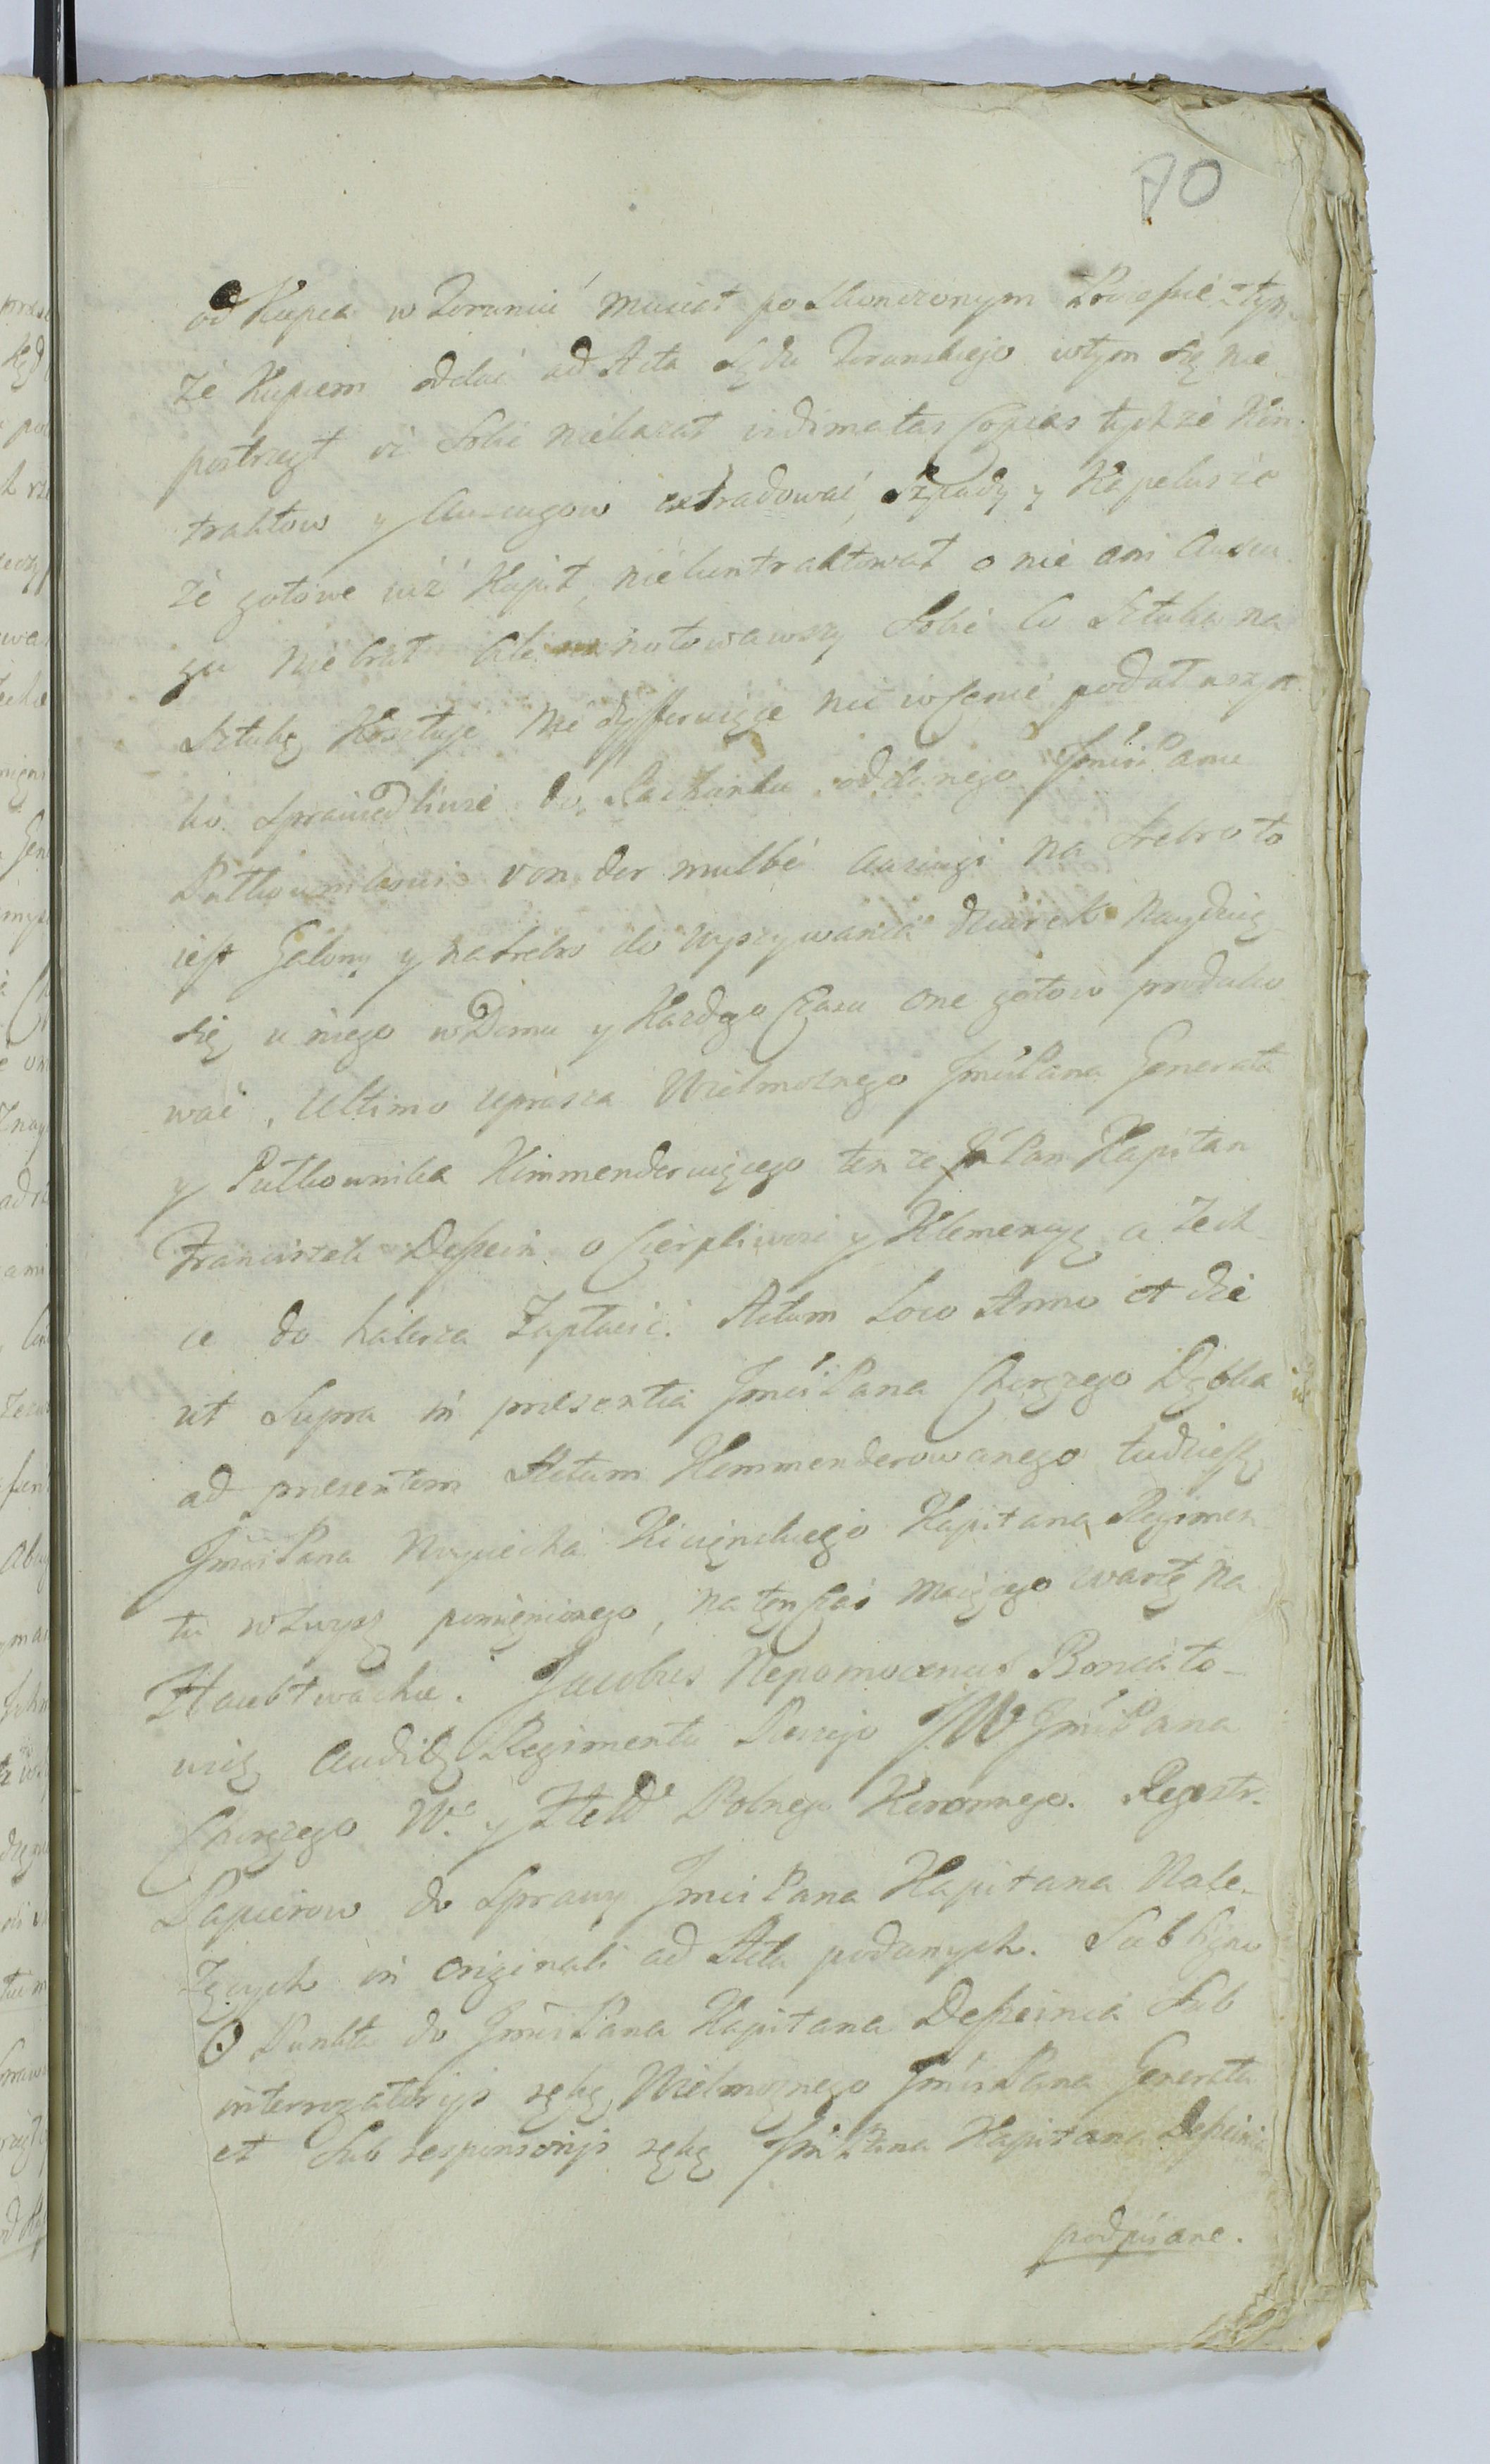 70
od Kupca w Toruniu musiał po skonczonym Processie z tym
że Kupcem oddać ad Acta Sądu Torunskiego w tym się nie
postrzegł iż Sobie niekazał vidimatas Copias tychże Kon
traktow y Auszugow extradować, Szpady y Kapelusze
że gotowe iuż Kupił, niekontraktował o nie ani Auszu
gu nie brał Ale notowawszy Sobie Co Sztuka na
Sztukę Kosztuje nie dyfferuiąc nic w Cenie podał wszyst
ko Sprawiedliwie do Rachunku oddanego Jmći Panu
Pułkownikowi von der Mulbe Auszugi na Srebro to
iest Galony y na srebro do wyszywania dziurek Nayduią
się u niego w Domu y Kazdego Czasu one gotow produko
wać, Ultimo uprasza Wielmoznego Jmći Pana Generała
y Pułkownika Kommenderuiącego tenze Jć Pan Kapitan
Franciszek Dessein o Cierpliwosc y Klemencyą a zech
ce do halerza Zapłacić. Actum Loco Anno et die
ut Supra in presentia Jmći Pana Chorązego Dąbka
ad presentem Actum Kommenderowanego tudziesz
Jmći Pana Woyciecha Kicinskiego Kapitana Regimen
tu wzwysz pomienionego, na tenczas maiącego wartę na
Haubtwachu. Jacobus Nepomocenus Boncato-
wicz Audit Regimentu Pieszego JW Jmći Pana
Chorązego W. y Litt Polnego Koronnego. Regestr
Papierow do Sprawy Jmći Pana Kapitana Nale-
żących in originali ad Acta podanych. Sub Signo
☉ Punkta do Jmći Pana Kapitana Desseina Sub
interrogatorijs ręką Wielmoznego Jmći Pana Generała
et Sub responsorijs ręką Jmći Pana Kapitana Desseina
podpisane.